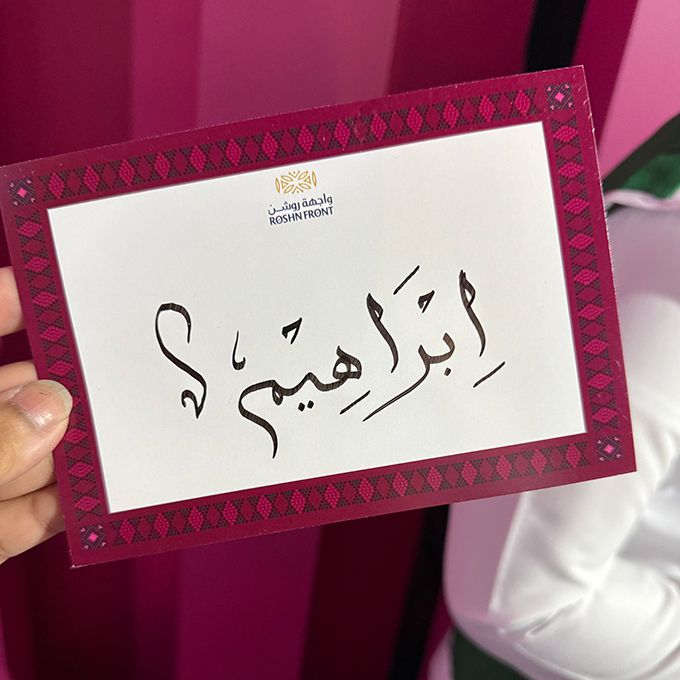 واجهة روشن
ROSHN FRONT
إبراهيم